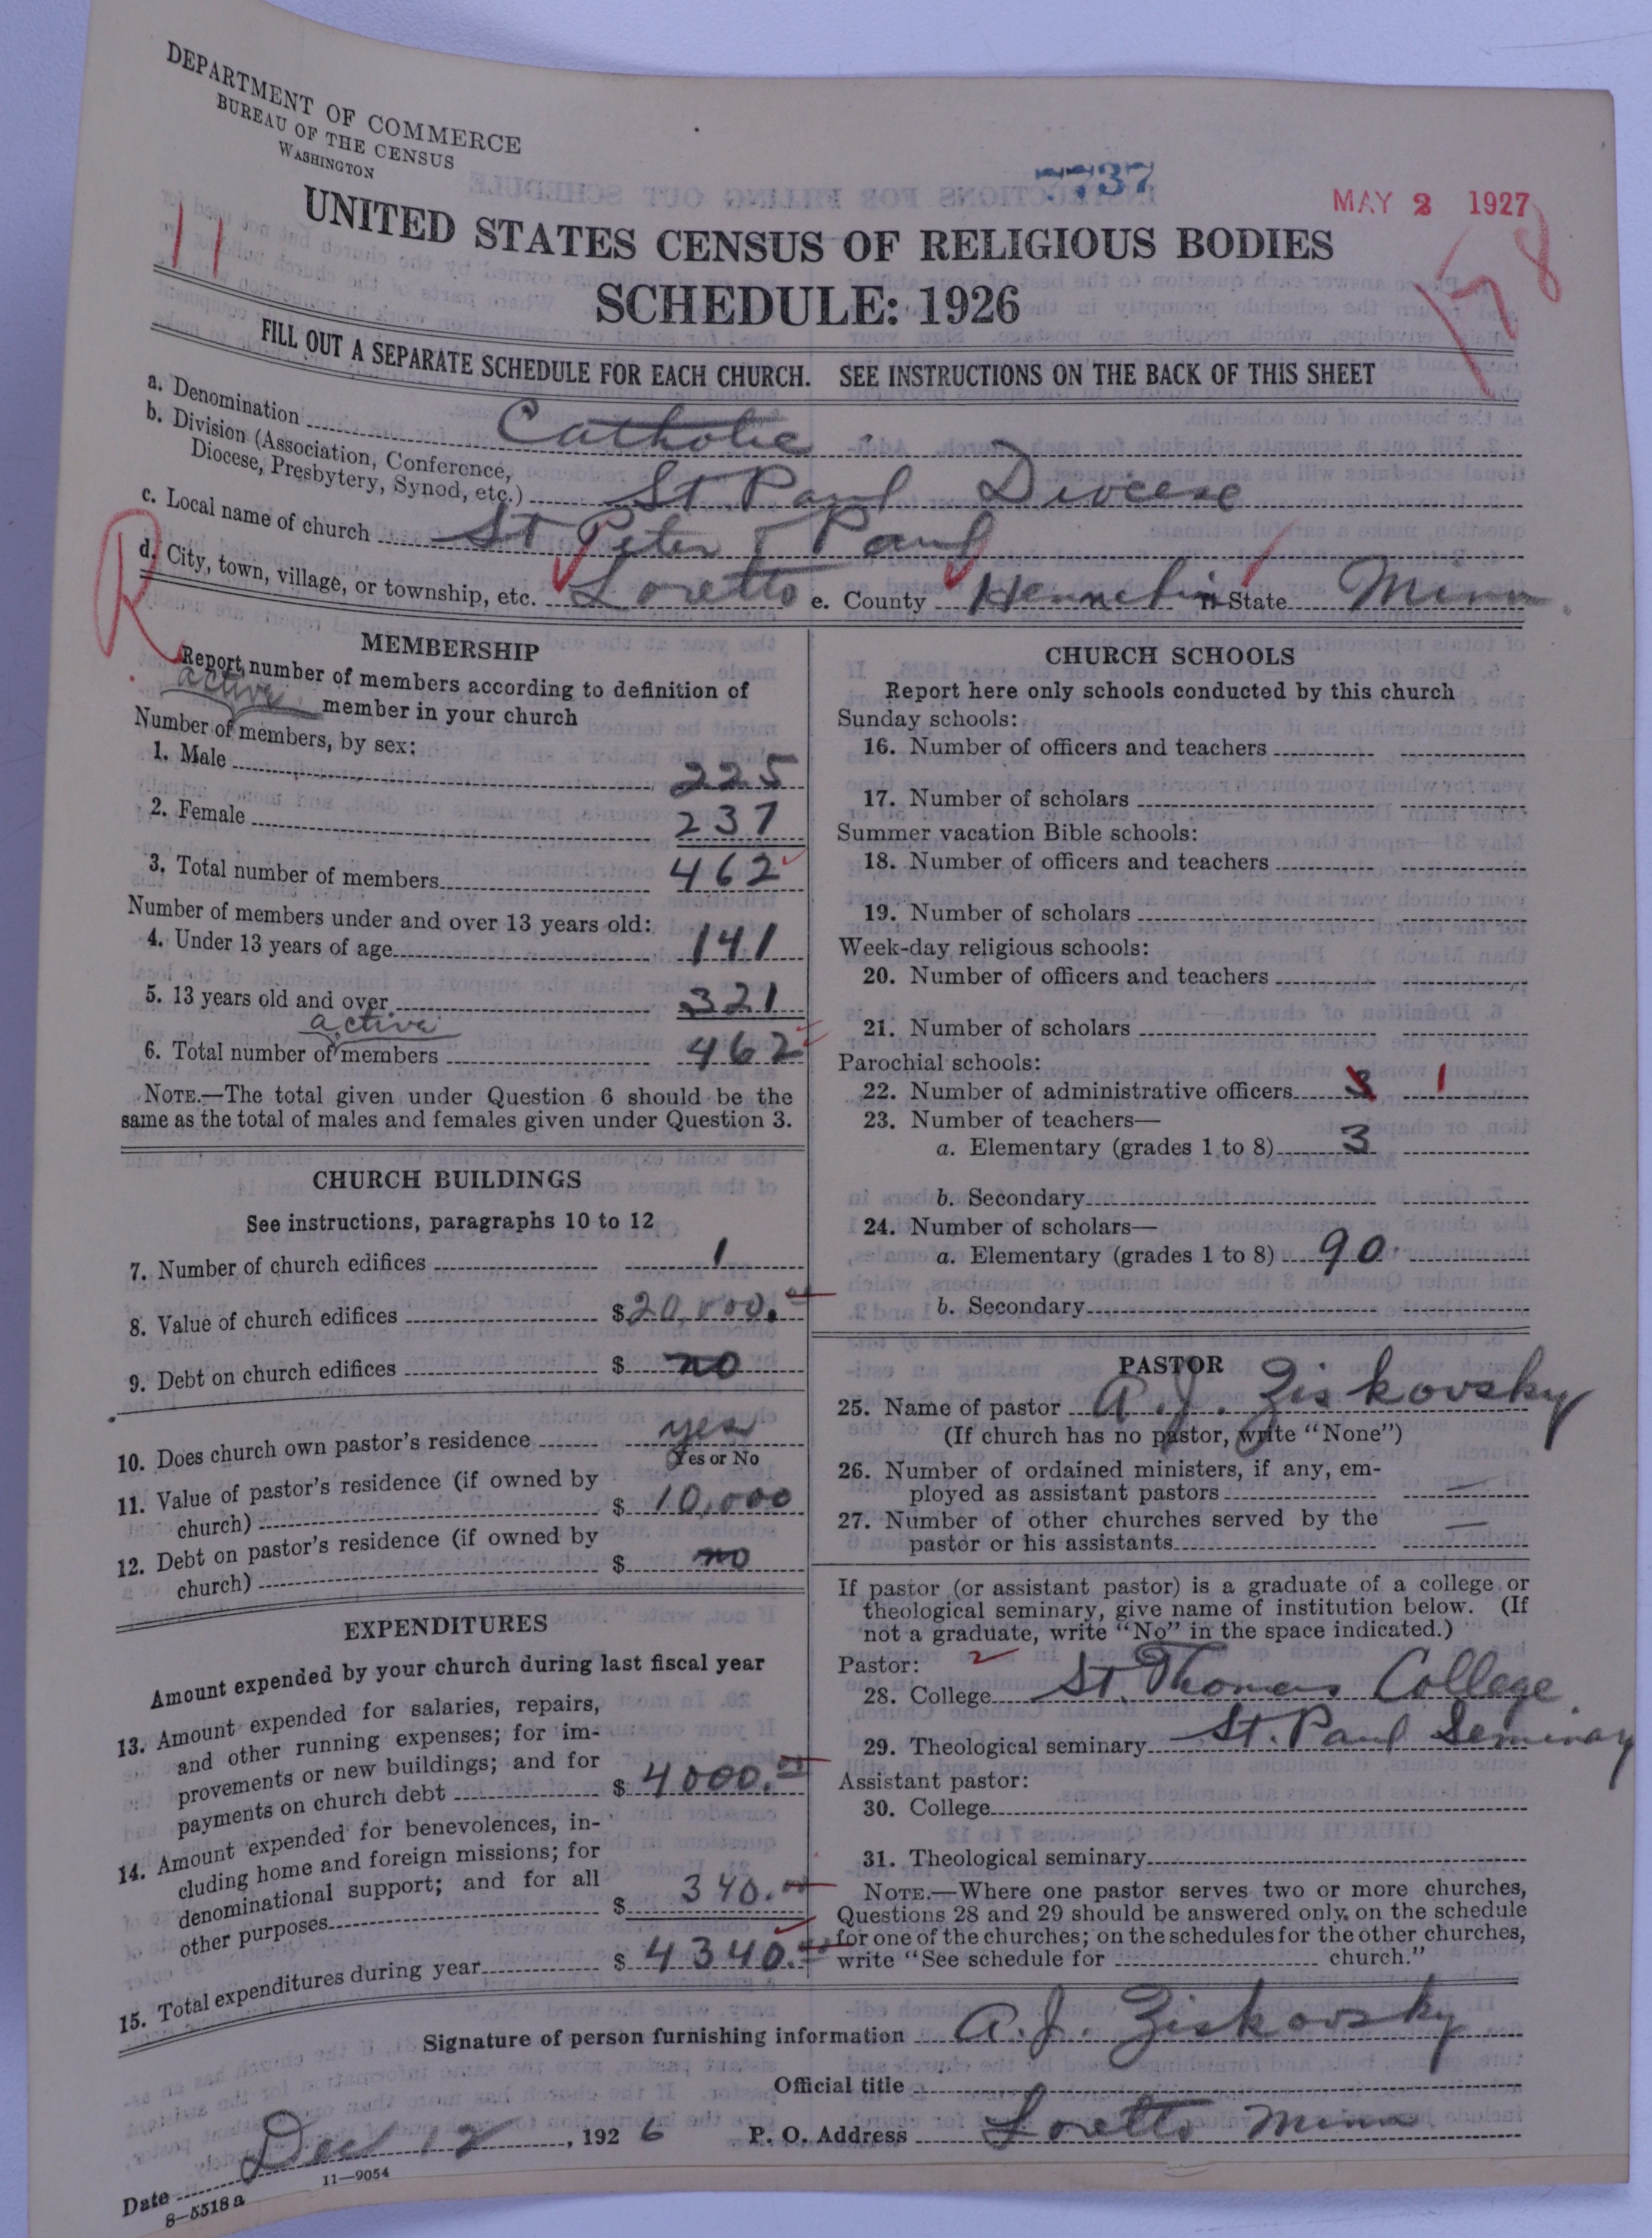 DEPARTMENT OF COMMERCE
BUREAU OF THE CENSUS
WASHINGTON
7737
MAY 2 1927
11
UNITED STATES CENSUS OF RELIGIOUS BODIES
178
SCHEDULE: 1926
FILL OUT A SEPARATE SCHEDULE FOR EACH CHURCH. SEE INSTRUCTIONS ON THE BACK OF THIS SHEET
a. Denomination Catholic
b. Division (Association, Conference,
Diocese, Presbytery, Synod, etc.) St Paul Diocese
c. Local name of church St Peter & Paul
R
d. City, town, village, or township, etc. Loretto e. County Hennepin State Minn.
MEMBERSHIP
Report number of members according to definition of
active member in your church
Number of members, by sex:
1. Male 225
2. Female 237
3. Total number of members 462
Number of members under and over 13 years old:
4. Under 13 years of age 141
5. 13 years old and over 321
active
6. Total number of members 462
NOTE.—The total given under Question 6 should be the
same as the total of males and females given under Question 3.
CHURCH BUILDINGS
See instructions, paragraphs 10 to 12
7. Number of church edifices 1
8. Value of church edifices $20,000.00
9. Debt on church edifices $ no
10. Does church own pastor's residence yes
Yes or No
11. Value of pastor's residence (if owned by
church) $ 10,000
12. Debt on pastor's residence (if owned by
church) $ no
EXPENDITURES
Amount expended by your church during last fiscal year
13. Amount expended for salaries, repairs,
and other running expenses; for im-
provements or new buildings; and for
payments on church debt $ 4000.00
14. Amount expended for benevolences, in-
cluding home and foreign missions; for
denominational support; and for all
other purposes $ 340.00
15. Total expenditures during year $ 4340.00
CHURCH SCHOOLS
Report here only schools conducted by this church
Sunday schools:
16. Number of officers and teachers
17. Number of scholars
Summer vacation Bible schools:
18. Number of officers and teachers
19. Number of scholars
Week-day religious schools:
20. Number of officers and teachers
21. Number of scholars
Parochial schools:
22. Number of administrative officers 3 1
23. Number of teachers—
a. Elementary (grades 1 to 8) 3
b. Secondary
24. Number of scholars—
a. Elementary (grades 1 to 8) 90
b. Secondary
PASTOR
25. Name of pastor A. J. Ziskovsky
(If church has no pastor, write "None")
26. Number of ordained ministers, if any, em-
ployed as assistant pastors —
27. Number of other churches served by the
pastor or his assistants —
If pastor (or assistant pastor) is a graduate of a college or
theological seminary, give name of institution below. (If
not a graduate, write "No" in the space indicated.)
Pastor:
28. College St. Thomas College
29. Theological seminary St. Paul Seminary
Assistant pastor:
30. College
31. Theological seminary
NOTE.—Where one pastor serves two or more churches,
Questions 28 and 29 should be answered only on the schedule
for one of the churches; on the schedules for the other churches,
write "See schedule for church."
Signature of person furnishing information A. J. Ziskovsky
Official title
Date Dec 12, 1926 P. O. Address Loretto Minn
8—5518 a 11—9054